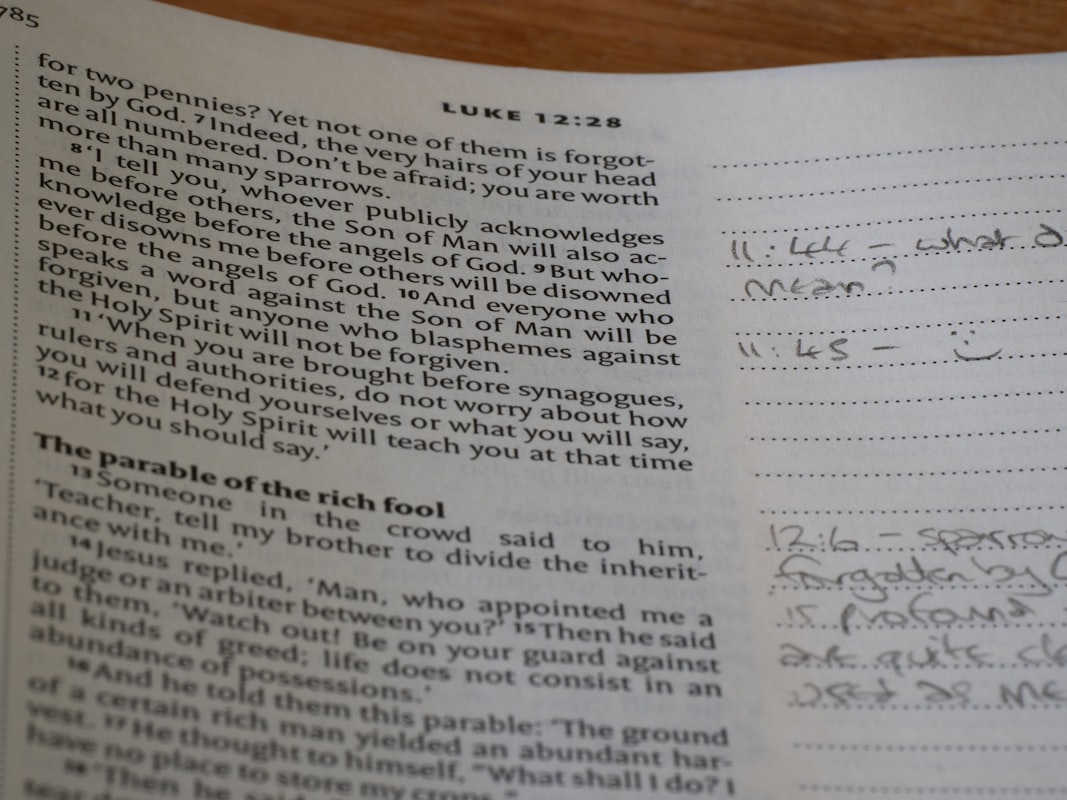 785
LUKE 12:28
for two pennies? Yet not one of them is forgot-
ten by God. 7 Indeed, the very hairs of your head
are all numbered. Don't be afraid; you are worth
more than many sparrows.
8 'I tell you, whoever publicly acknowledges
me before others, the Son of Man will also ac-
knowledge before the angels of God. 9 But who-
ever disowns me before others will be disowned
before the angels of God. 10 And everyone who
speaks a word against the Son of Man will be
forgiven, but anyone who blasphemes against
the Holy Spirit will not be forgiven.
11 'When you are brought before synagogues,
rulers and authorities, do not worry about how
you will defend yourselves or what you will say,
12 for the Holy Spirit will teach you at that time
what you should say.'
The parable of the rich fool
13 Someone in the crowd said to him,
'Teacher, tell my brother to divide the inherit-
ance with me.'
14 Jesus replied, 'Man, who appointed me a
judge or an arbiter between you?' 15 Then he said
to them, 'Watch out! Be on your guard against
all kinds of greed; life does not consist in an
abundance of possessions.'
16 And he told them this parable: 'The ground
of a certain rich man yielded an abundant har-
vest. 17 He thought to himself, "What shall I do? I
have no place to store my crops."
18 'Then he said
11:44 - what
mean
11:45 - :)
12:6 - sparrow
forgotten by
is profound
are quite
used as me